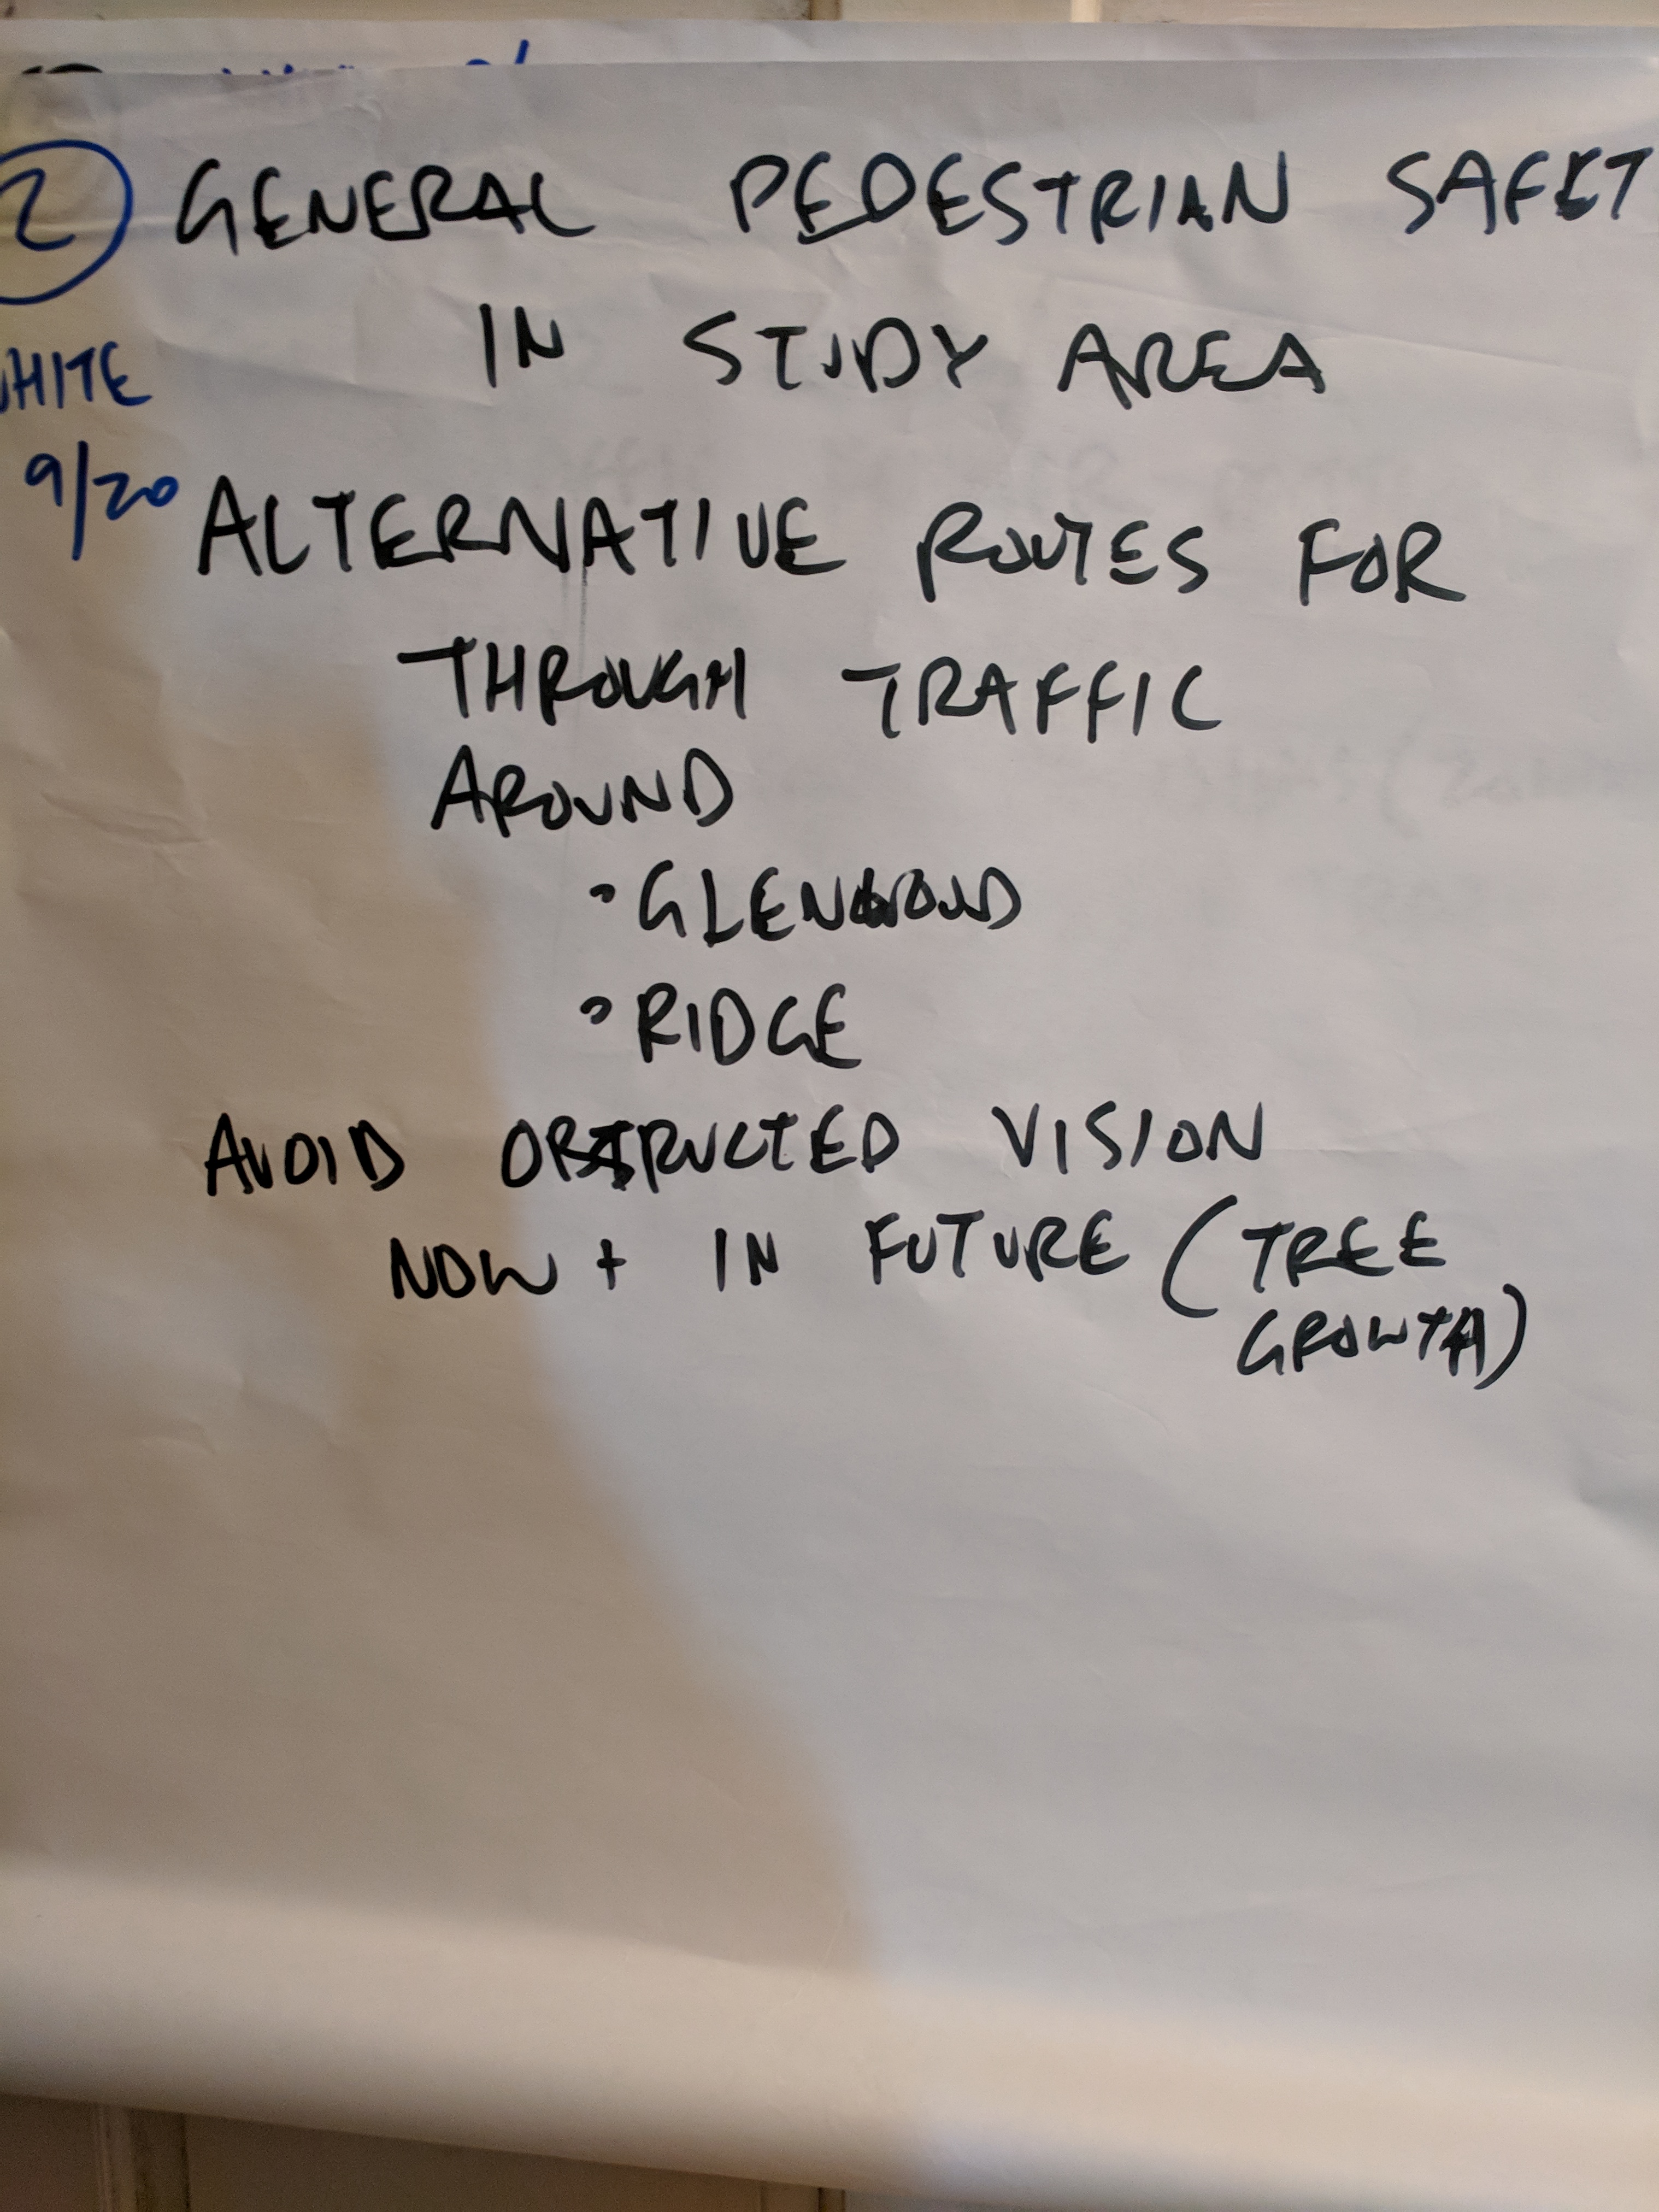 2 GENERAL PEDESTRIAN SAFET
IN STUDY AREA
HITE
9/20
ALTERNATIVE ROUTES FOR
THROUGH TRAFFIC
AROUND
• GLENWOOD
• RIDGE
AVOID OBSTRUCTED VISION
NOW + IN FUTURE (TREE
GROWTH)